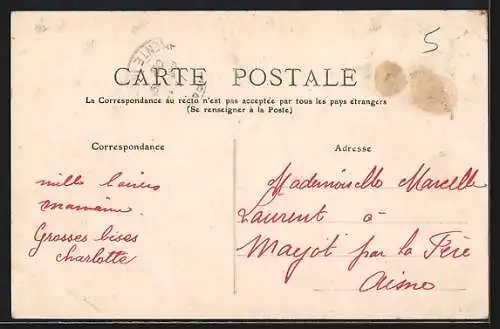 5
CARTE POSTALE
La Correspondance au recto n'est pas acceptée par tous les pays étrangers
(Se renseigner à la Poste)
Correspondance
mille baisers
Grosses bises
charlotte
Adresse
Mademoiselle Marcelle
Laurent à
Mayot par la Fère
Aisne